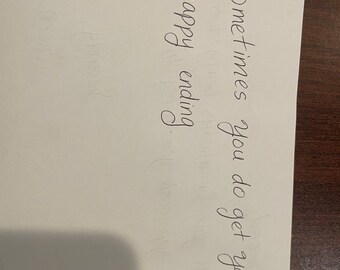 ometimes you do get y
appy ending